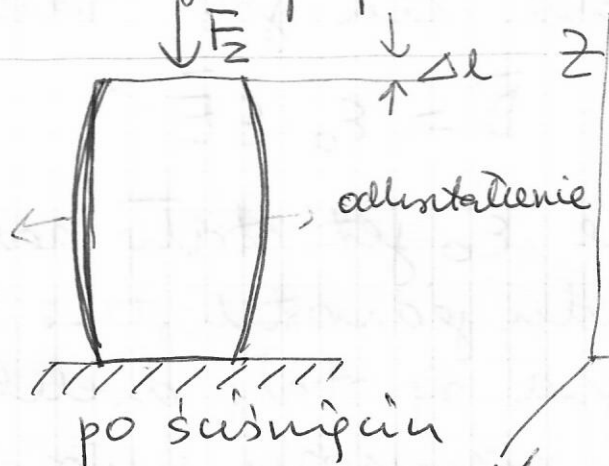 F_z
Δl
z
odkształcenie
po ściśnięciu